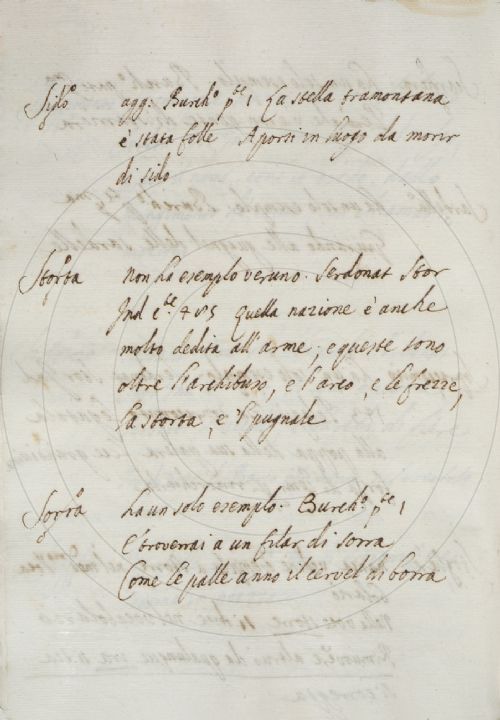 Sido agg: Burch.o p.te 1 La stella tramontana
è stata folle A porsi in luogo da morir
di sido
Storta non ha esemplo veruno. Serdonat Stor
Ind quella nazione è anche
molto dedita all'arme; e queste sono
oltre l'archibuso, e l'arco, e le frezze,
la storta, e 'l pugnale
Sorra ha un solo esemplo. Burch.o p.te 1
E troverrai a un filar di sorra
Come le palle anno il cervel di borra